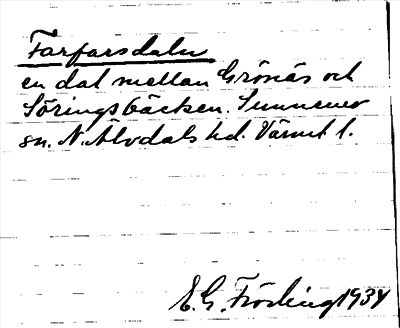 Farfarsdalen
en dal mellan Grönäs och
Söringsbäcken.
sn. N. Älvdals hd. Värml l.
E. G. Fröding 1934